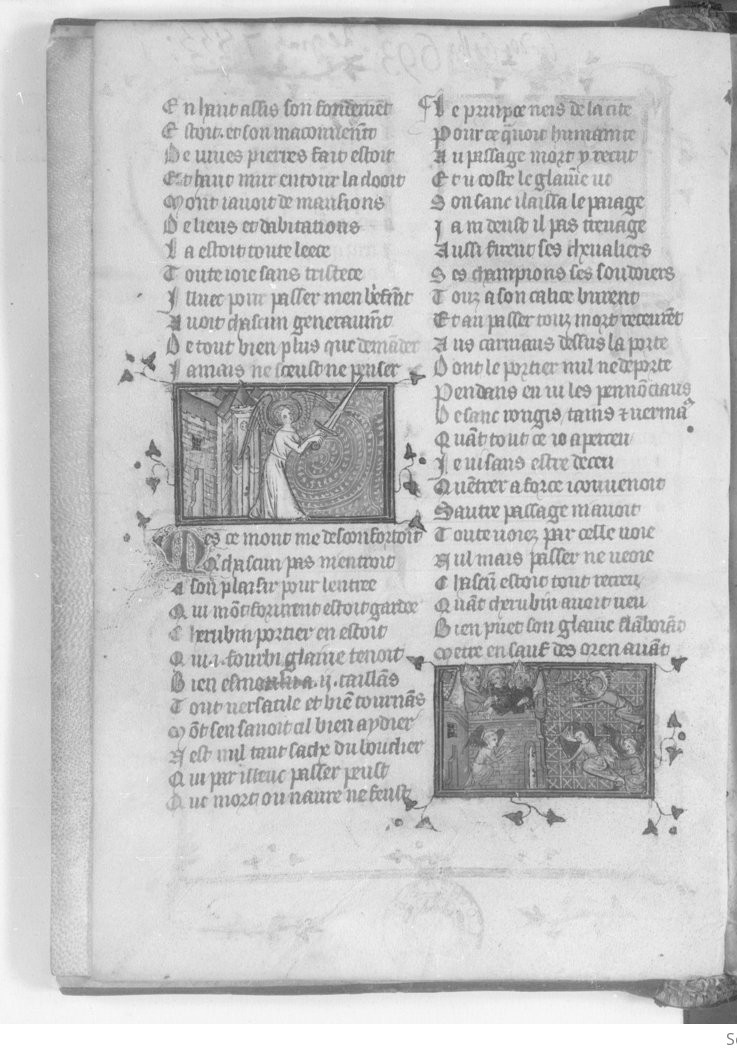 En haut assis son fondemēt
Estoit. et son maconnemēt
De uiues pierres fait estoit
Et haut mur entour la clooit
Mont iauoit de mansions
De lieus et dabitations
La estoit toute leece
Toute ioie sans tristece
Illuec pour passer men briefmt
Auoit chascun generaumt
De tout bien plus que demander
Jamais ne sceust ne penser
Mes ce mont me desconfortoit
Q̄ chascun pas nentroit
A son plaisir pour lentree
Qui mōt formēt estoit gardee
Cherubin portier en estoit
Qui .i. fourbi glaiue tenoit
Bien esmoulu a .ij. taillās
Tout uersatile et biē tournās
Mōt sen sauoit cil bien aydier
Nest nul tant sache du bouclier
Qui par illeuc passer peust
Que mort ou naure ne feust
Le prinpce neis de la cite
Pour ce q̄uoit humanite
Au passage mort y recut
Et u coste le glaiue ut
Son sanc i laissa le paiage
Ja ni deust il pas treuage
Aussi firent ses cheualiers
Ses champions ses soudoiers
Touz a son calice burent
Et au passer touz mort receurēt
Aus carniaus dessus la porte
Dont le portier nul ne deporte
Pendans en ui les pennōciaus
De sanc rougis, tains ⁊ uermaus
Quāt tout ce io aperceu
Je ui sans estre deceu
Quētrer a force i couuenoit
Sautre passage ni auoit
Toute uoiez par celle uoie
Nul mais passer ne ueoie
Chascū estoit tout recreu
Quāt cherubin auoit ueu
Bien puet son glaiue flāboiāt
Mettre en sauf des oren auāt